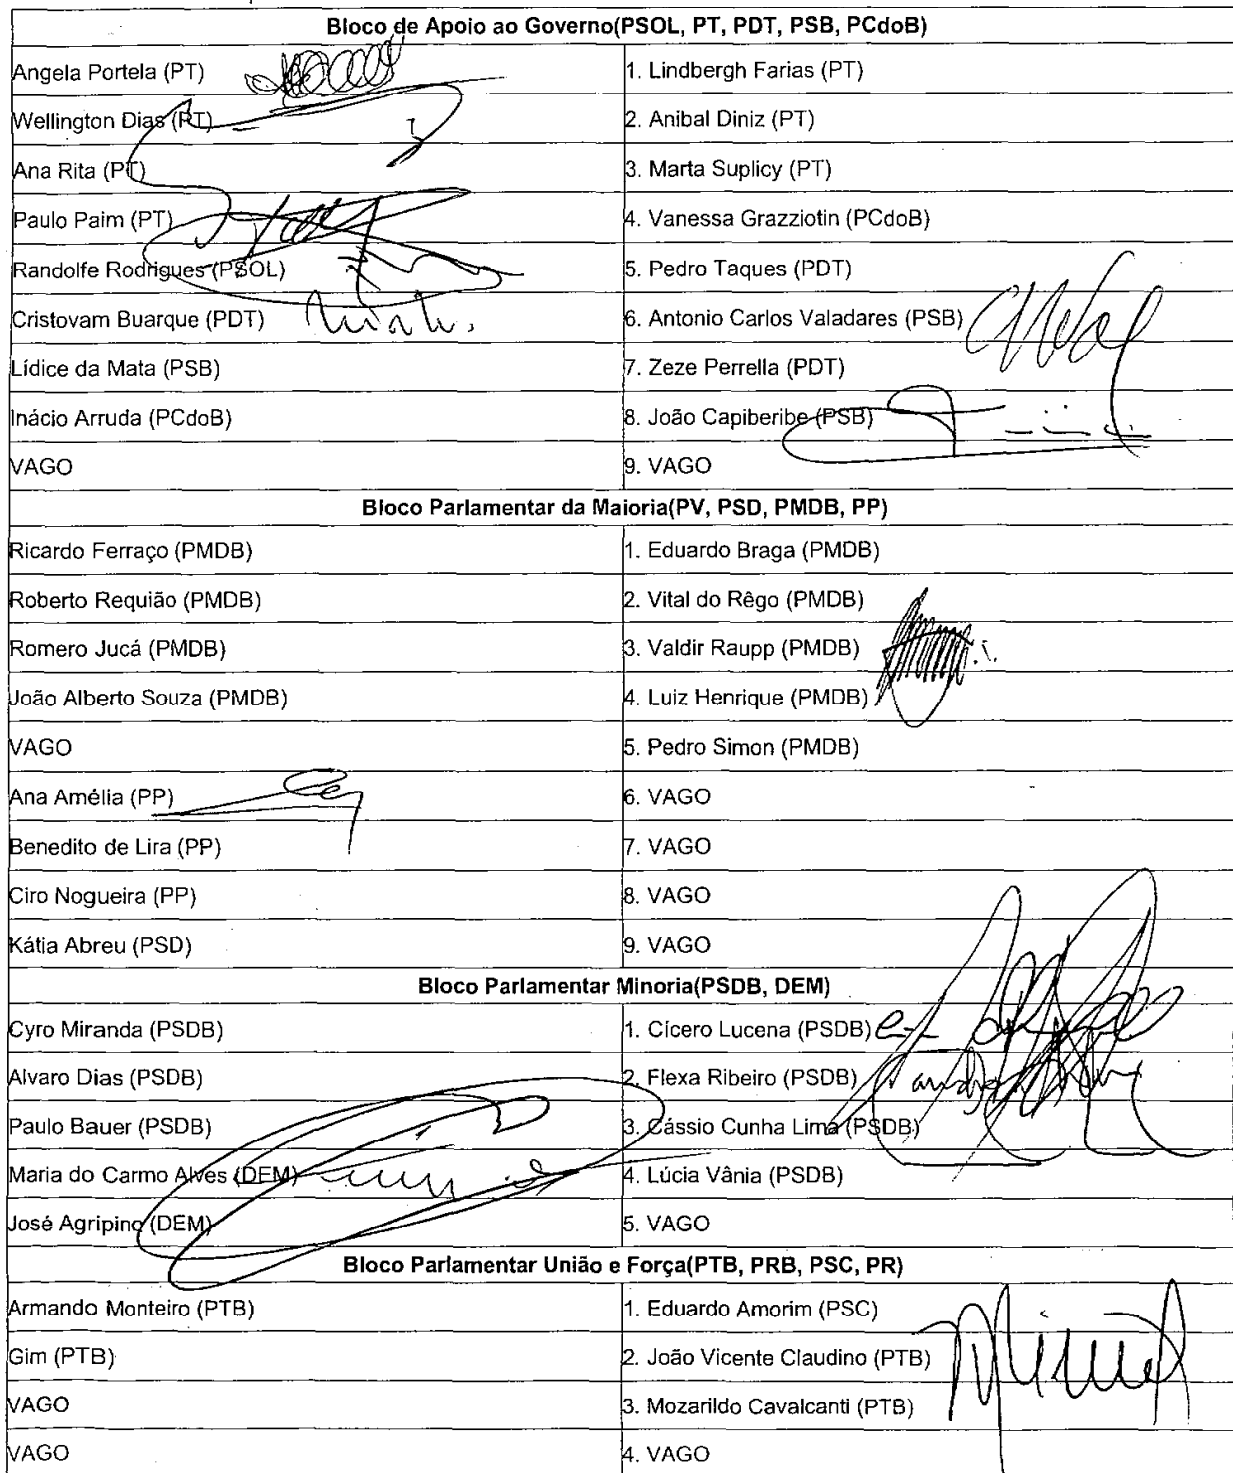 Bloco de Apoio ao Governo(PSOL, PT, PDT, PSB, PCdoB)
Angela Portela (PT)
1. Lindbergh Farias (PT)
Wellington Dias (PT)
2. Anibal Diniz (PT)
Ana Rita (PT)
3. Marta Suplicy (PT)
Paulo Paim (PT)
4. Vanessa Grazziotin (PCdoB)
Randolfe Rodrigues (PSOL)
5. Pedro Taques (PDT)
Cristovam Buarque (PDT)
6. Antonio Carlos Valadares (PSB)
Lídice da Mata (PSB)
7. Zeze Perrella (PDT)
Inácio Arruda (PCdoB)
8. João Capiberibe (PSB)
VAGO
9. VAGO
Bloco Parlamentar da Maioria(PV, PSD, PMDB, PP)
Ricardo Ferraço (PMDB)
1. Eduardo Braga (PMDB)
Roberto Requião (PMDB)
2. Vital do Rêgo (PMDB)
Romero Jucá (PMDB)
3. Valdir Raupp (PMDB)
João Alberto Souza (PMDB)
4. Luiz Henrique (PMDB)
VAGO
5. Pedro Simon (PMDB)
Ana Amélia (PP)
6. VAGO
Benedito de Lira (PP)
7. VAGO
Ciro Nogueira (PP)
8. VAGO
Kátia Abreu (PSD)
9. VAGO
Bloco Parlamentar Minoria(PSDB, DEM)
Cyro Miranda (PSDB)
1. Cícero Lucena (PSDB)
Alvaro Dias (PSDB)
2. Flexa Ribeiro (PSDB)
Paulo Bauer (PSDB)
3. Cássio Cunha Lima (PSDB)
Maria do Carmo Alves (DEM)
4. Lúcia Vânia (PSDB)
José Agripino (DEM)
5. VAGO
Bloco Parlamentar União e Força(PTB, PRB, PSC, PR)
Armando Monteiro (PTB)
1. Eduardo Amorim (PSC)
Gim (PTB)
2. João Vicente Claudino (PTB)
VAGO
3. Mozarildo Cavalcanti (PTB)
VAGO
4. VAGO